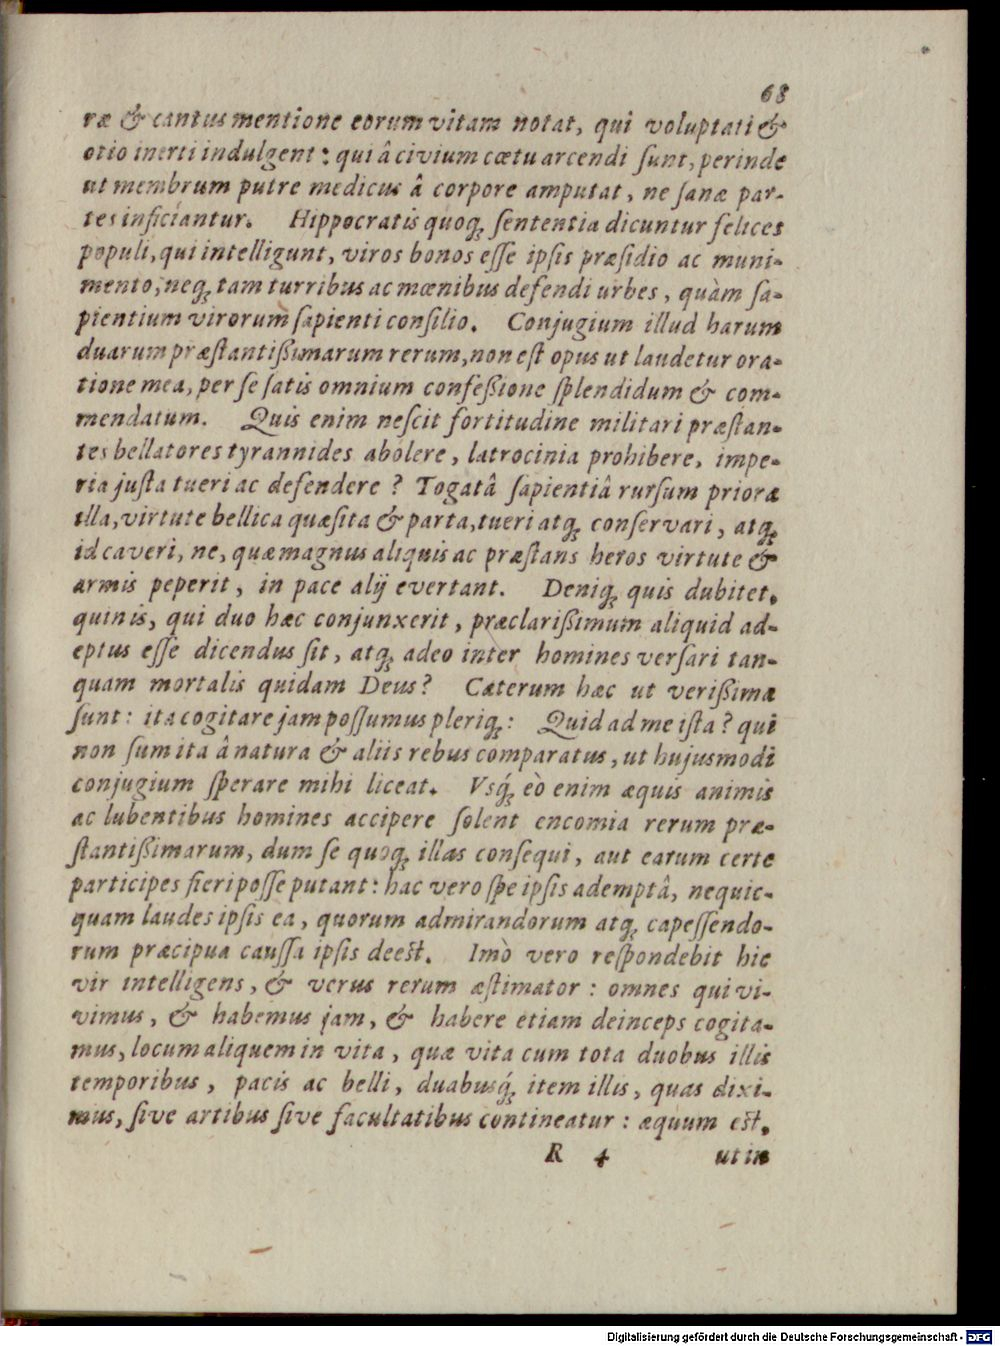 68
ræ & cantus mentione eorum vitam notat, qui voluptati &
otio inerti indulgent: qui â civium cœtu arcendi ſunt, perinde
ut membrum putre medicus â corpore amputat, ne ſanæ par-
tes inficiantur. Hippocratis quoq; ſententia dicuntur felices
populi, qui intelligunt, viros bonos eſſe ipſis præſidio ac muni-
mento, neq; tam turribus ac mœnibus defendi urbes, quàm ſa-
pientium virorum ſapienti conſilio. Conjugium illud harum
duarum præſtantißimarum rerum, non eſt opus ut laudetur ora-
tione mea, per ſe ſatis omnium confeßione ſplendidum & com-
mendatum. Quis enim neſcit fortitudine militari præſtan-
tes bellatores tyrannides abolere, latrocinia prohibere, impe-
ria juſta tueri ac defendere? Togatâ ſapientiâ rurſum prioræ
illa, virtute bellica quæſita & parta, tueri atq; conſervari, atq;
id caveri, ne, quæ magnus aliquis ac præſtans heros virtute &
armis peperit, in pace alij evertant. Deniq; quis dubitet,
quin is, qui duo hæc conjunxerit, præclarißimum aliquid ad-
eptus eſſe dicendus ſit, atq; adeo inter homines verſari tan-
quam mortalis quidam Deus? Cæterum hæc ut verißimæ
ſunt: ita cogitare jam poſſumus pleriq;: Quid ad me iſta? qui
non ſum ita â natura & aliis rebus comparatus, ut hujusmodi
conjugium ſperare mihi liceat. Vsq́; eò enim æquis animis
ac lubentibus homines accipere ſolent encomia rerum præ-
ſtantißimarum, dum ſe quoq; illas conſequi, aut earum certe
participes fieri poſſe putant: hac vero ſpe ipſis ademptâ, nequic-
quam laudes ipſis ea, quorum admirandorum atq; capeſſendo-
rum præcipua cauſſa ipſis deeſt. Imò vero reſpondebit hic
vir intelligens, & verus rerum æſtimator: omnes qui vi-
vimus, & habemus jam, & habere etiam deinceps cogita-
mus, locum aliquem in vita, quæ vita cum tota duobus illis
temporibus, pacis ac belli, duabusq́; item illis, quas dixi-
mus, ſive artibus ſive facultatibus contineatur: æquum eſt,
R 4 ut in
Digitalisierung gefördert durch die Deutsche Forschungsgemeinschaft - DFG